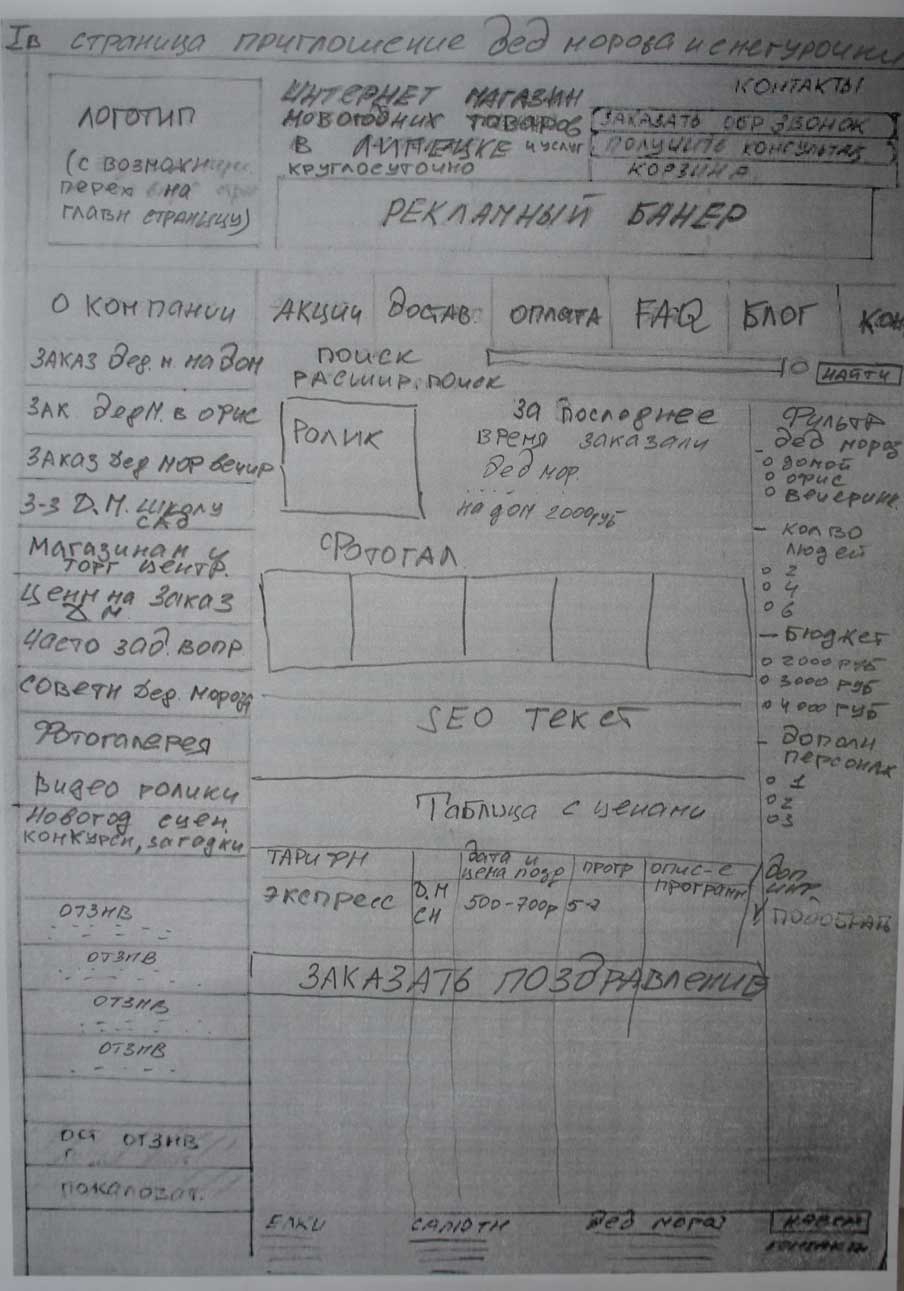 Iв страница приглошение дед мороза и снегурочки
ЛОГОТИП
(с возможн
перех на
главн страницу)
ИНТЕРНЕТ МАГАЗИН
НОВОГОДНИХ ТОВАРОВ
В ЛИПЕЦКЕ и услуг
круглосуточно
КОНТАКТЫ
ЗАКАЗАТЬ ОБР ЗВОНОК
ПОЛУЧИТЬ КОНСУЛЬТАЦ
КОРЗИНА
РЕКЛАМНЫЙ БАНЕР
О компании
АКЦИИ
Достав.
ОПЛАТА
FAQ
БЛОГ
КОН
ЗАКАЗ дед. м. на дом
ЗАК. дед М. в офис
ЗАКАЗ Дед мор вечир
З-з Д.М. школу
сад
Магазинам и
торг центр.
Цены на заказ
Д М.
Часто зад. вопр
Советы дед. мороза
Фотогалерея
Видео ролики
Новогод сцен.
конкурсы, загадки
ОТЗЫВ
ОТЗЫВ
ОТЗЫВ
ОТЗЫВ
ост отзыв
пожаловат.
ПОИСК
РАСШИР. ПОИСК
НАЙТИ
РОЛИК
За последнее
время заказали
Дед мор.
на дом 2000руб
Фотогал.
SEO текст
Таблица с ценами
ТАРИФЫ
дата и
цена позд
прогр
опис-е
программ
ЭКСПРЕСС
Д.М
СН
500-700р
5-7
ЗАКАЗАТЬ ПОЗДРАВЛЕНИЕ
Фильтр
дед мороз
домой
офис
вечеринк.
- кол во
людей
2
4
6
- Бюджет
2000 руб
3000 руб
4000 руб
- дополн
персонаж
1
2
3
доп
инт
ПОДОБРАТЬ
ЕЛКИ
САЛЮТЫ
Дед мороз
НАВЕРХ
контакты